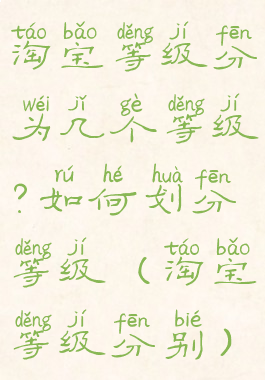 táo bǎo děng jí fēn
淘宝等级分
wéi jǐ gè děng jí
为几个等级
rú hé huà fēn
?如何划分
děng jí táo bǎo
等级（淘宝
děng jí fēn bié
等级分别）